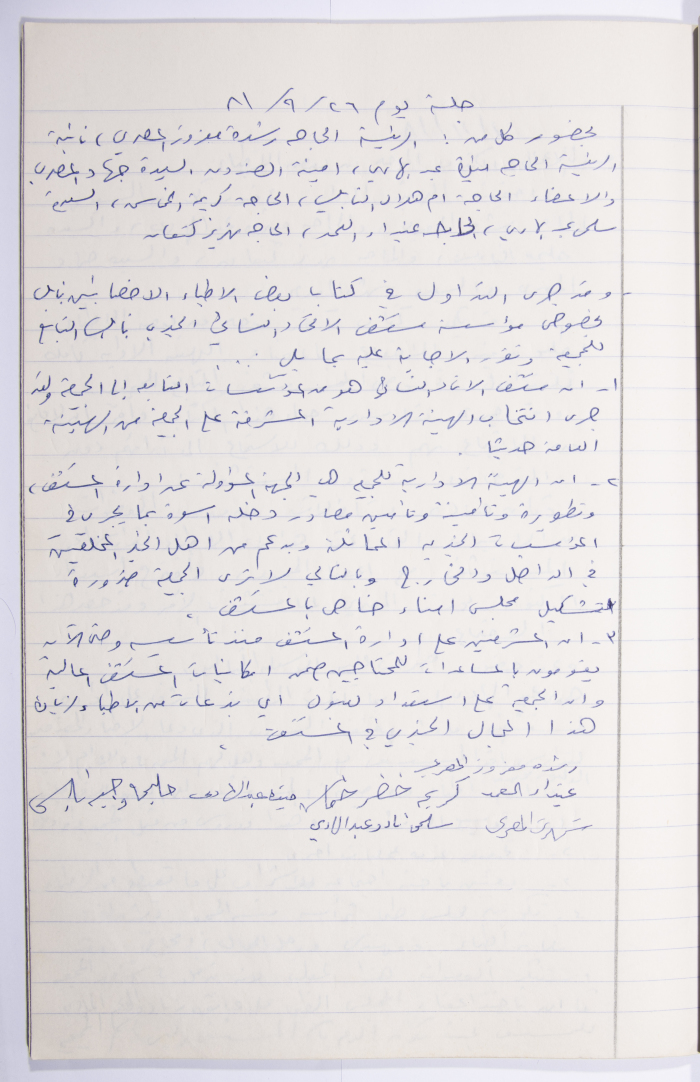 جلسة يوم ٢٦ / ٩ / ٨١
بحضور كل من : الرئيسة الحاجه رشدة معزوز المصري ، نائبة
الرئيسة الحاجه عبد الهادي ، امينة الصندوق السيدة جهاد المصري
والاعضاء الحاجة ام هلال النابلسي ، الحاجة كريمة الخماس ، السيدة
سلمى عبد الهادي ، الحاجه عيدار السعد ، الحاجه كنعان
- وقد جرى التداول في كتاب بعض الاطباء الاخصائيين بنابلس
بخصوص مؤسسة مستشفى الاتحاد النسائي الخيري بنابلس التابع
للجمعية وتقرر الاجابة عليه بما يلي ...
١- ان مستشفى الاتحاد النسائي هو من المؤسسات التابعه الى الجمعية وقد
جرى انتخاب الهيئة الادارية المشرفة على الجمعية من الهيئة
العامة حديثا .
٢- ان الهيئة الادارية للجمعيه هي الجهة المسؤولة عن ادارة المستشفى ،
وتطويرة وتأمين مصادر دخله اسوة بما يجري في
المؤسسات الخيريه المماثلة وبدعم من اهل الخير المخلصين
في الداخل والخارج وبالتالي لا ترى الجمعية ضرورة
لتشكيل مجلس امناء خاص بالمستشفى .
٣- ان المشرفين على ادارة المستشفى منذ تأسيسه وحتى الآن
يقومون بالمساعدات للمحتاجين ضمن امكانيات المستشفى المالية
وان الجمعية على استعداد لقبول اي تبرعات من الاطباء لزيادة
هذا المجال الخيري في المستشفى .
رشده معزوز المصري
عيدار السعد كريمه خضر خماس عبد الهادي
المصري سلمى عبد الهادي